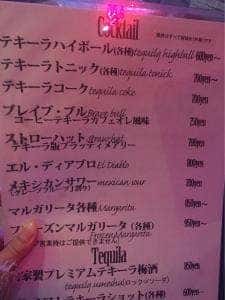 Cocktail
テキーラハイボール(各種) tequila highball 600yen~
テキーラトニック(各種) tequila tonick 750yen~
テキーラコーク tequila coke 700yen
ブレイブ・ブル Brave bull
コーヒーテキーラカフェオレ風味 750yen
ストローハット Strawhat
テキーラ版ブラッディメアリー
エル・ディアブロ El Diablo
メキシカンサワー mexican sour
マルガリータ各種 Margarita
フローズンマルガリータ(各種) 950yen~
Frozen Margarita
Tequila
自家製プレミアムテキーラ梅酒 850yen
tequila umeshu(ロックorソーダ)
テキーラショット(各種) 600yen